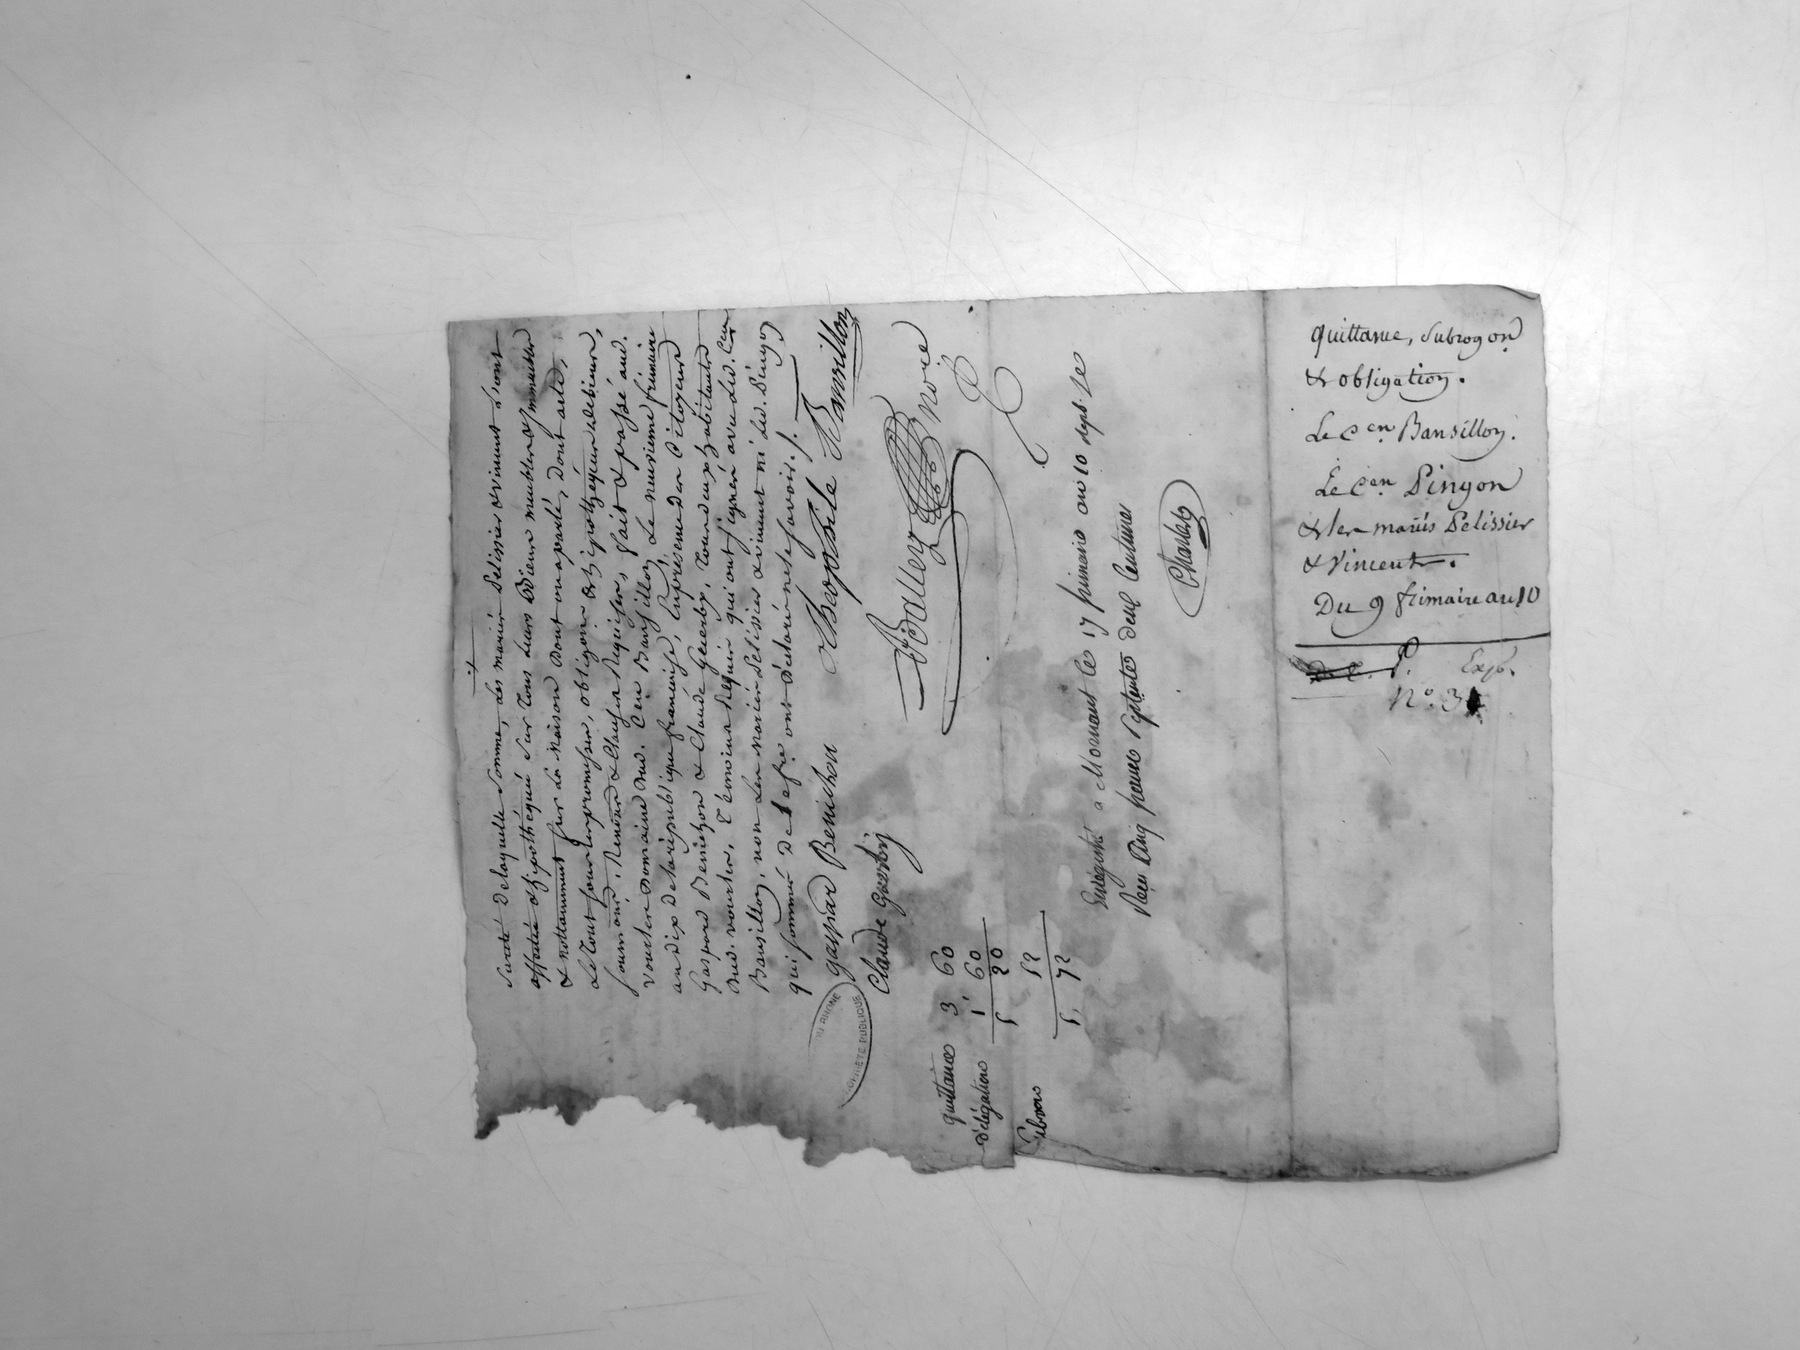 sureté de laquelle somme, les mariés Pelissier & Vincent s'ont
affecté & hipothéqué sur tous leurs Biens meubles & immeubles
& nottamment sur la maison dont on a parlé, dont acte,
Le tout par les promesses, obligeon & hipothéque des debiteurs,
soumons, renons & clauses requises, fait & passé aud.
Vourles domaine dud. Cen Bansillon Le neuvieme frimaire
an dix de la république francaise, En présence des Citoyens
Gaspard Benichon & Claude Guerby, tous deux habitants
dud. vourles, témoins requis qui ont signés avec led. Cen
Bansillon, non les mariés Pelissier & Vincent ni led. Pinyon
qui sommé de le fre ont déclaré ne le savoir ./.
gaspard Benichon Theophile Bansillon
Claude Guerby
Bailly noire
DU RHONE
PUBLIQUE
quittance 3 60
délégation 1, 60
5 20
52
5, 72
Enrégistré a Mornant le 17 frimaire an 10 
Reçu Cinq francs septente deux Centimes
Quittance, subrogon
& obligation.
Le Cen Bansillon.
Le Cen Pinyon
& les mariés Pelissier
& Vincent.
Du 9 frimaire an 10
P. Exp.
No. 3